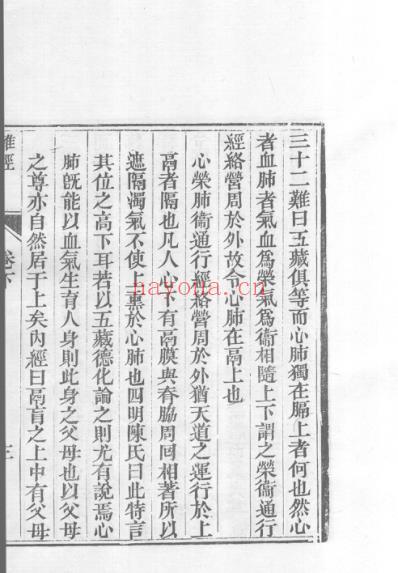 三十二難曰五藏俱等而心肺獨在膈上者何也然心
者血肺者氣血爲榮氣爲衞相隨上下謂之榮衞通行
經絡營周於外故令心肺在鬲上也
心榮肺衞通行經絡營周於外猶天道之運行於上
鬲者隔也凡人心下有鬲膜與脊脇周回相著所以
遮隔濁氣不使上熏於心肺也四明陳氏曰此特言
其位之高下耳若以五藏德化論之則尤有說焉心
肺旣能以血氣生育人身則此身之父母也以父母
之尊亦自然居于上矣內經曰鬲肓之上中有父母
難經
卷下
三
nayona.cn